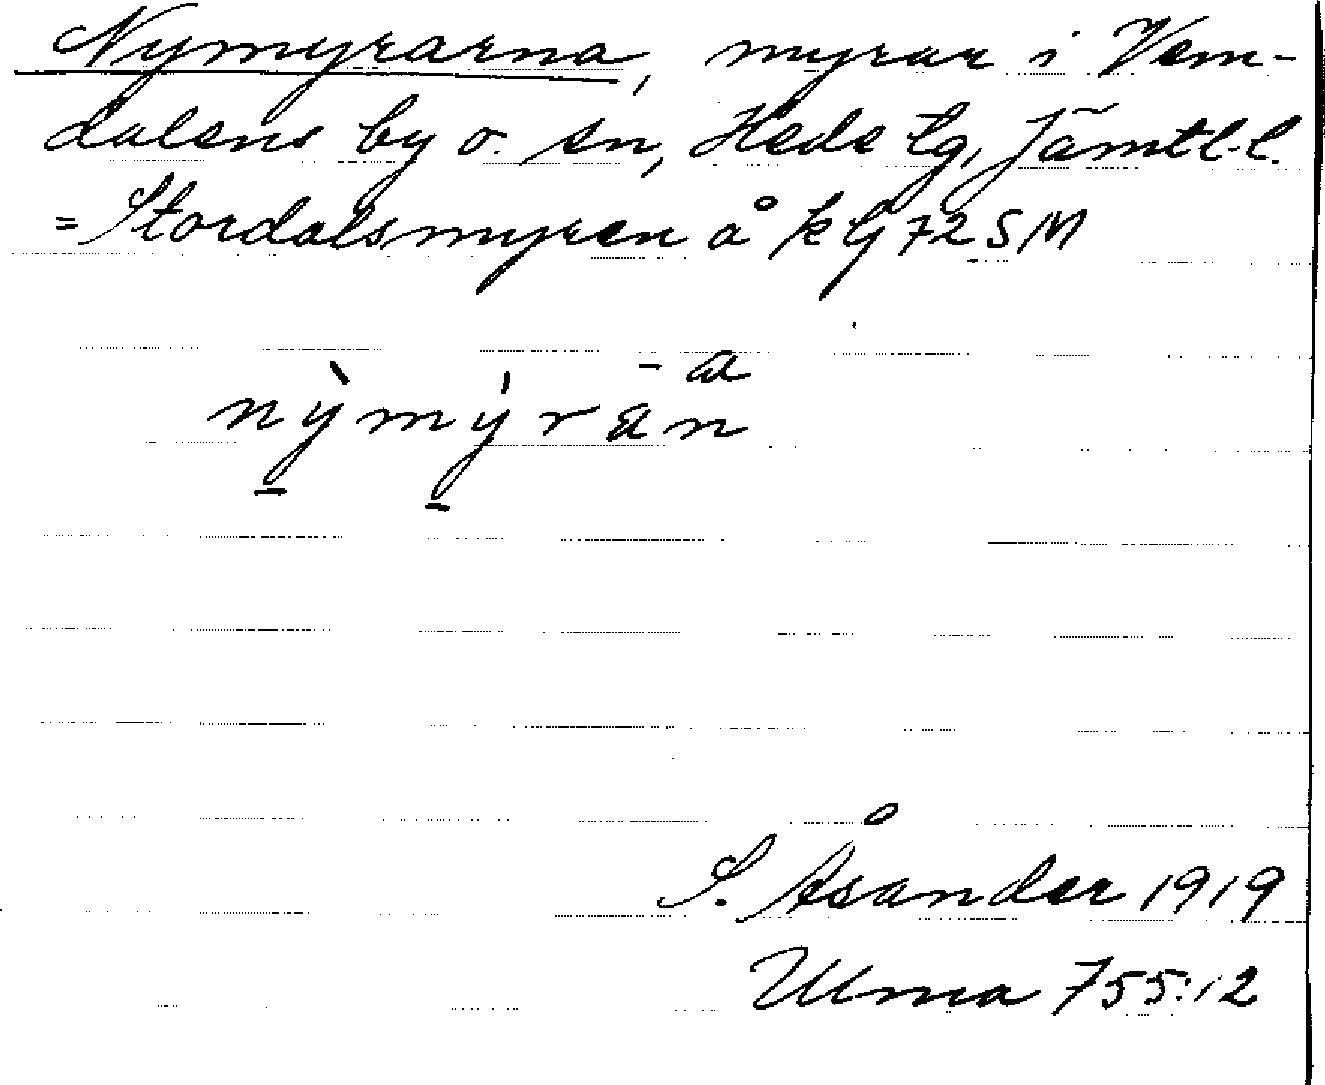 Nymyrarna, myrar i Vem-
dalens by o. sn, Hede tg, Jämtl. l.
= Stordalsmyren å kbl 72 SM
- a
nỳmýrän
S. Åsander 1919
Ulma 755:12